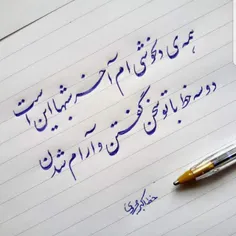 همه ی دلخوشی ام آخر شبها این است
دو سه خط با تو سخن گفتن و آرام شدن